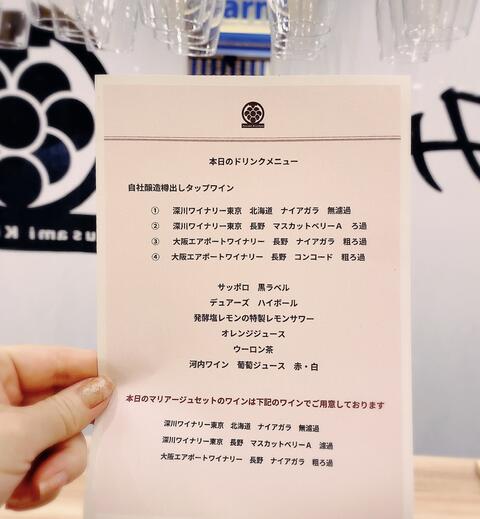 本日のドリンクメニュー
自社醸造樽出しタップワイン
① 深川ワイナリー東京 北海道 ナイアガラ 無濾過
② 深川ワイナリー東京 長野 マスカットベリーA ろ過
③ 大阪エアポートワイナリー 長野 ナイアガラ 粗ろ過
④ 大阪エアポートワイナリー 長野 コンコード 粗ろ過
サッポロ 黒ラベル
デュアーズ ハイボール
発酵塩レモンの特製レモンサワー
オレンジジュース
ウーロン茶
河内ワイン 葡萄ジュース 赤・白
本日のマリアージュセットのワインは下記のワインでご用意しております
深川ワイナリー東京 北海道 ナイアガラ 無濾過
深川ワイナリー東京 長野 マスカットベリーA 濾過
大阪エアポートワイナリー 長野 ナイアガラ 粗ろ過